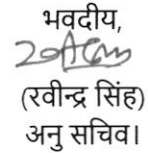 भवदीय,
(रवीन्द्र सिंह)
अनु सचिव।